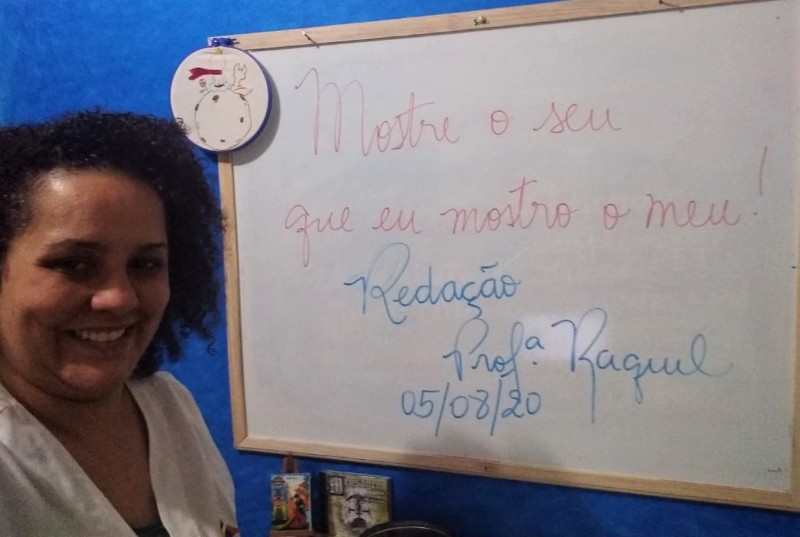 Mostre o seu
que eu mostro o meu!
Redação
Profª. Raquel
05/08/20